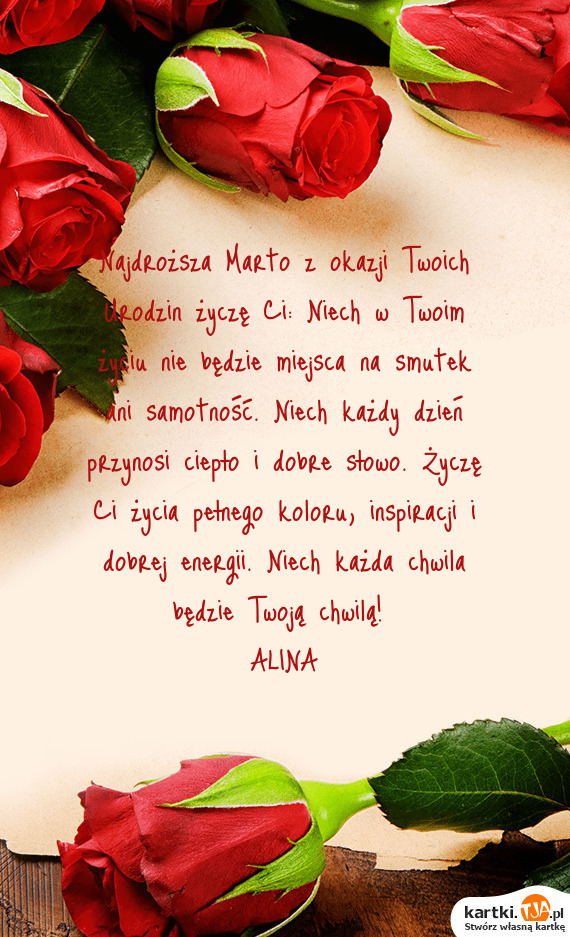 Najdroższa Marto z okazji Twoich
Urodzin życzę Ci: Niech w Twoim
życiu nie będzie miejsca na smutek
ani samotność. Niech każdy dzień
przynosi ciepło i dobre słowo. Życzę
Ci życia pełnego koloru, inspiracji i
dobrej energii. Niech każda chwila
będzie Twoją chwilą!
ALINA
kartki.TJA.pl
Stwórz własną kartkę